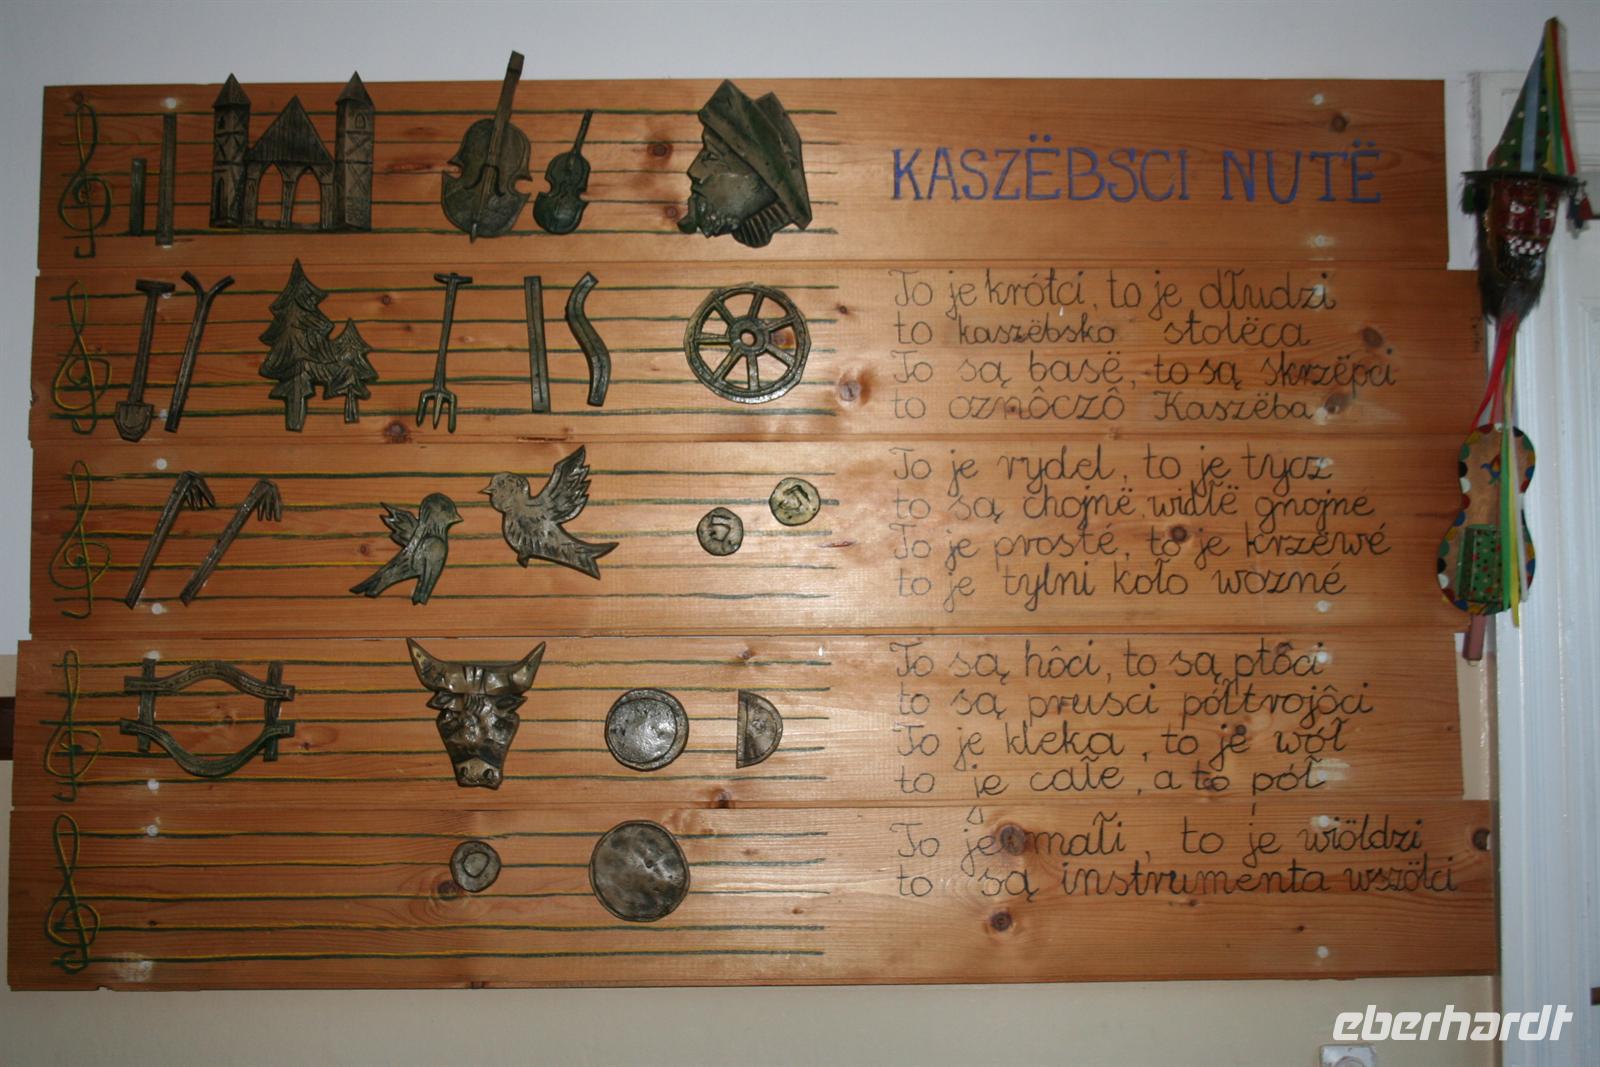 KASZËBSCI NUTË
To je krótci, to je dłudzi
to kaszëbskô stolëca
To są basë, to są skrzëpci
to oznôczô Kaszëba
To je rydel, to je tycz
to są chojnë, widłë gnojné
To je prosté, to je krzëwé
to je tylni koło wozné
To są hôci, to są ptôci
to są prusci półtrojôci
To je kleka, to je wół
to je całé, a to pół
To je małi, to je wiôldzi
to są instrumenta wszôtci
eberhardt